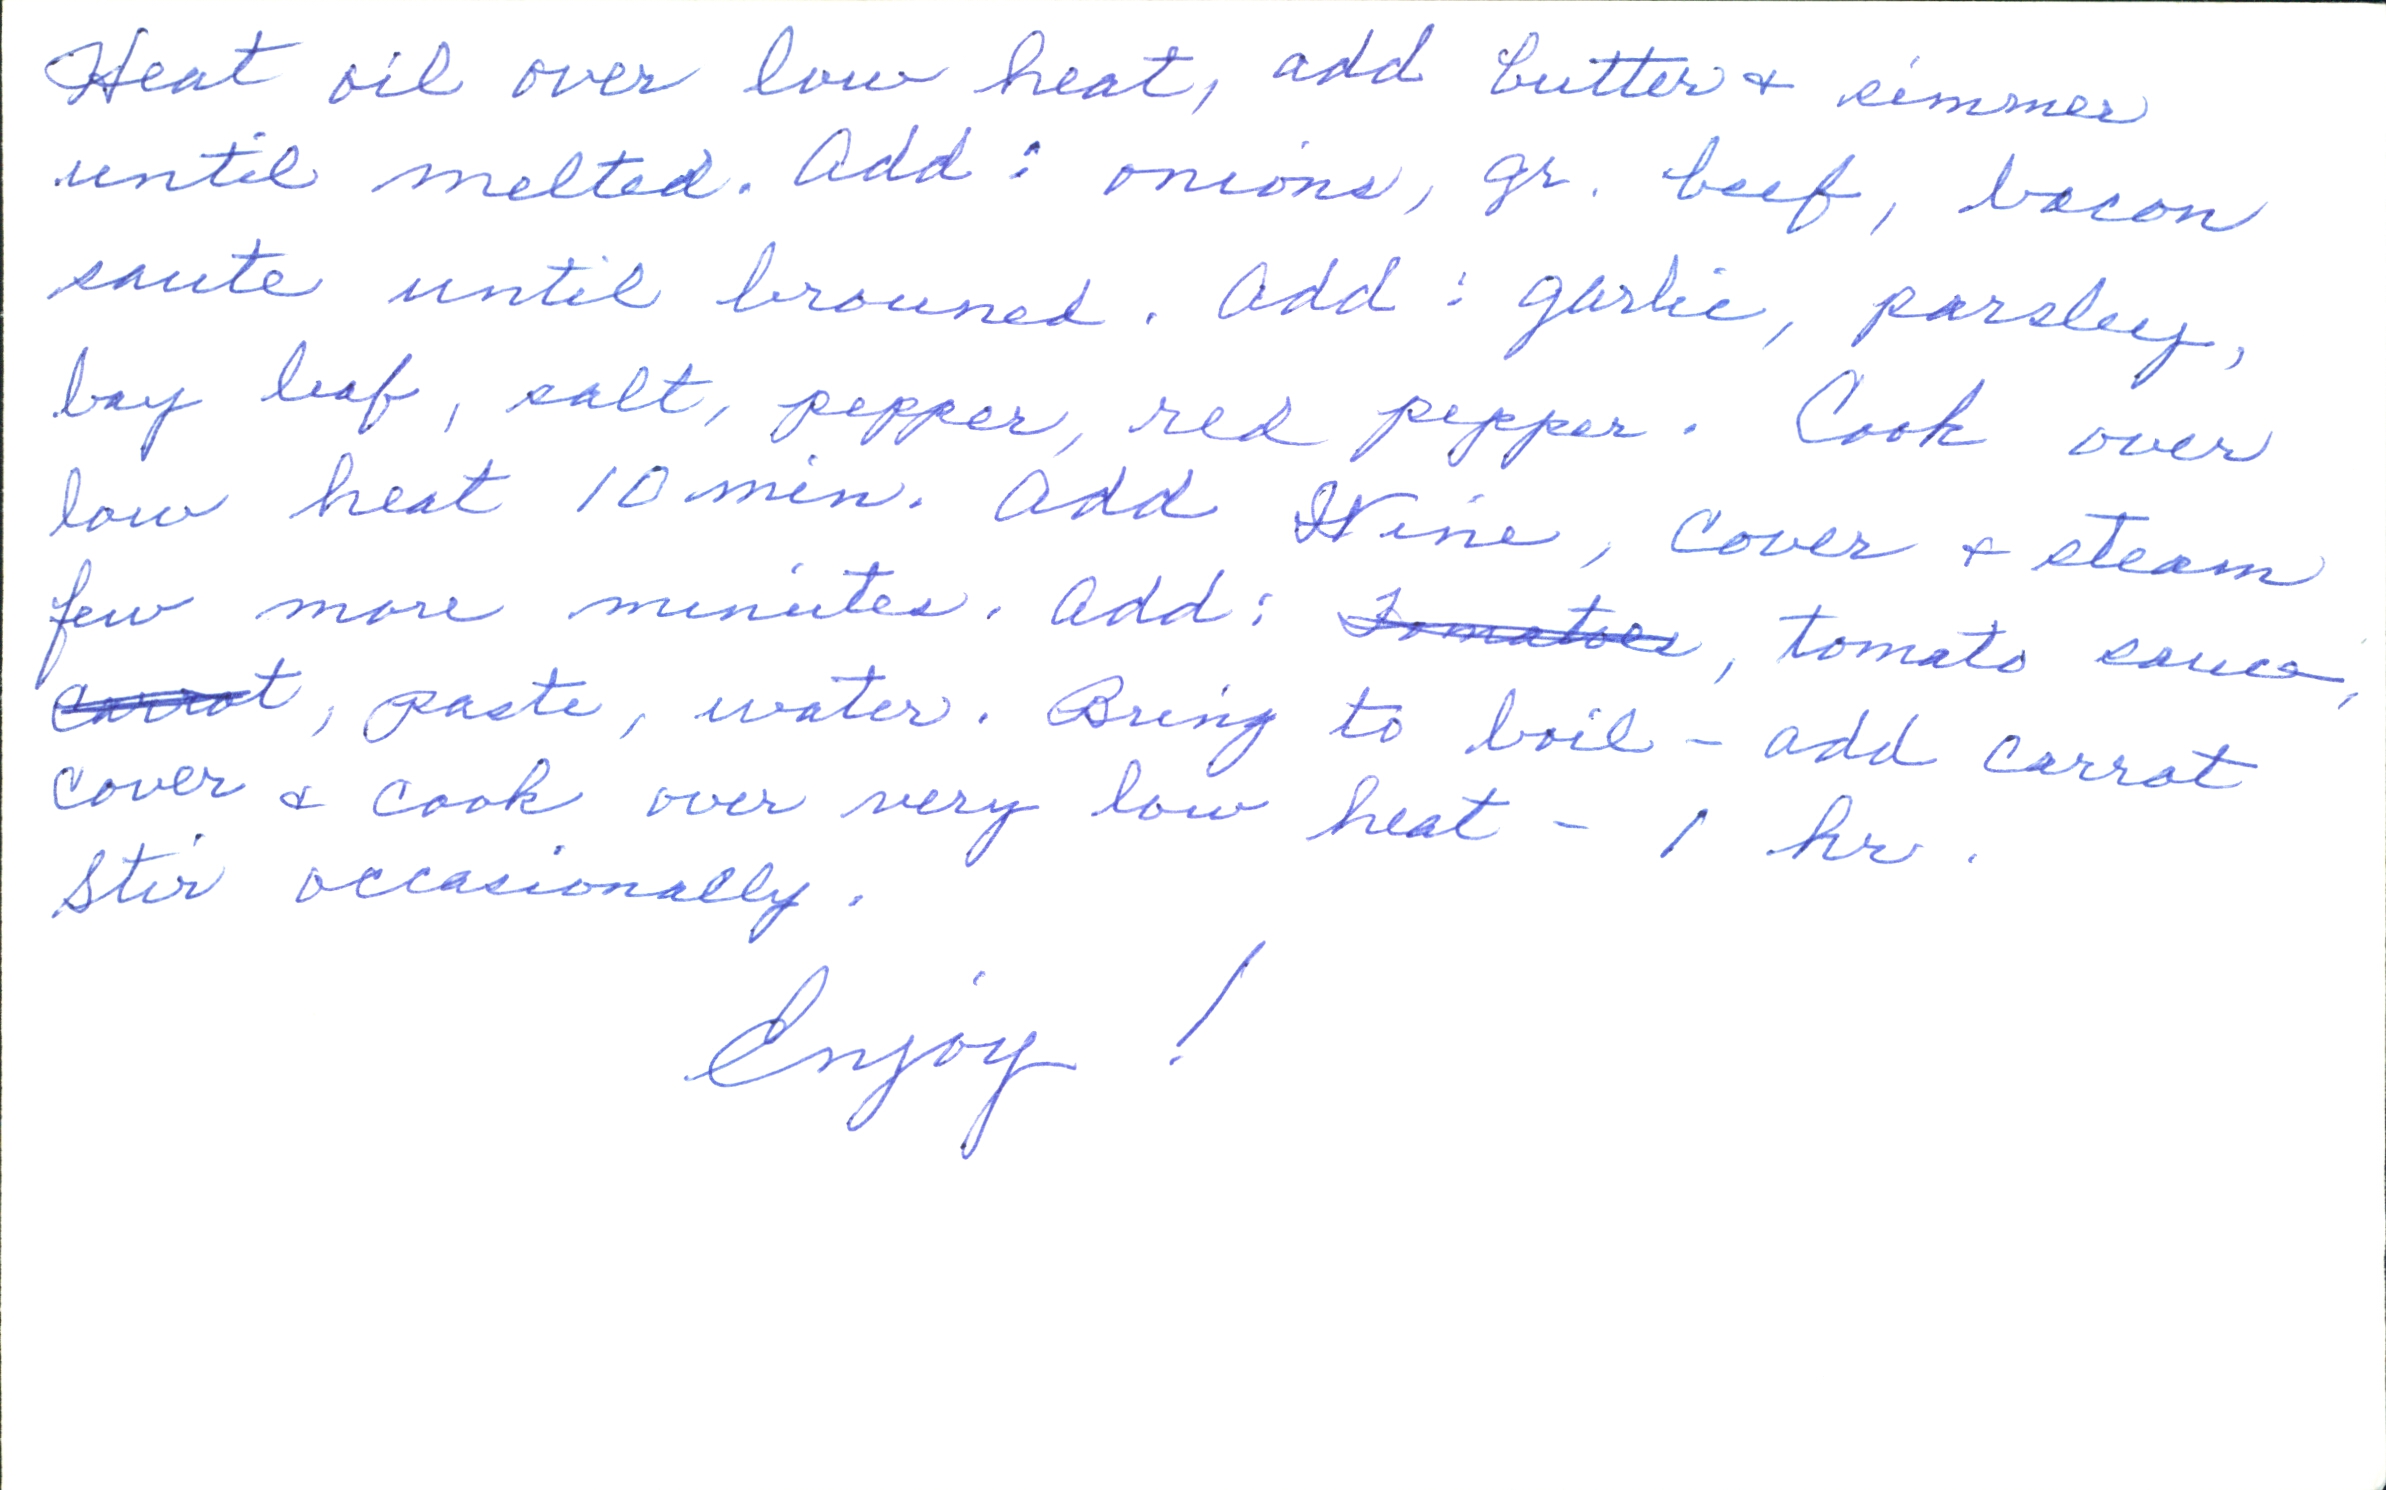 Heat oil over low heat, add butter & simmer
until melted. Add : onions, gr. beef, bacon
saute until browned. Add : garlic, parsley,
bay leaf, salt, pepper, red pepper. Cook over
low heat 10 min. Add Wine, cover & steam
few more minutes. Add : ~~Tomatoes~~, tomato sauce,
~~Carrot~~, paste, water. Bring to boil - add carrot
cover & cook over very low heat - 1 hr.
Stir occasionally.
Enjoy !